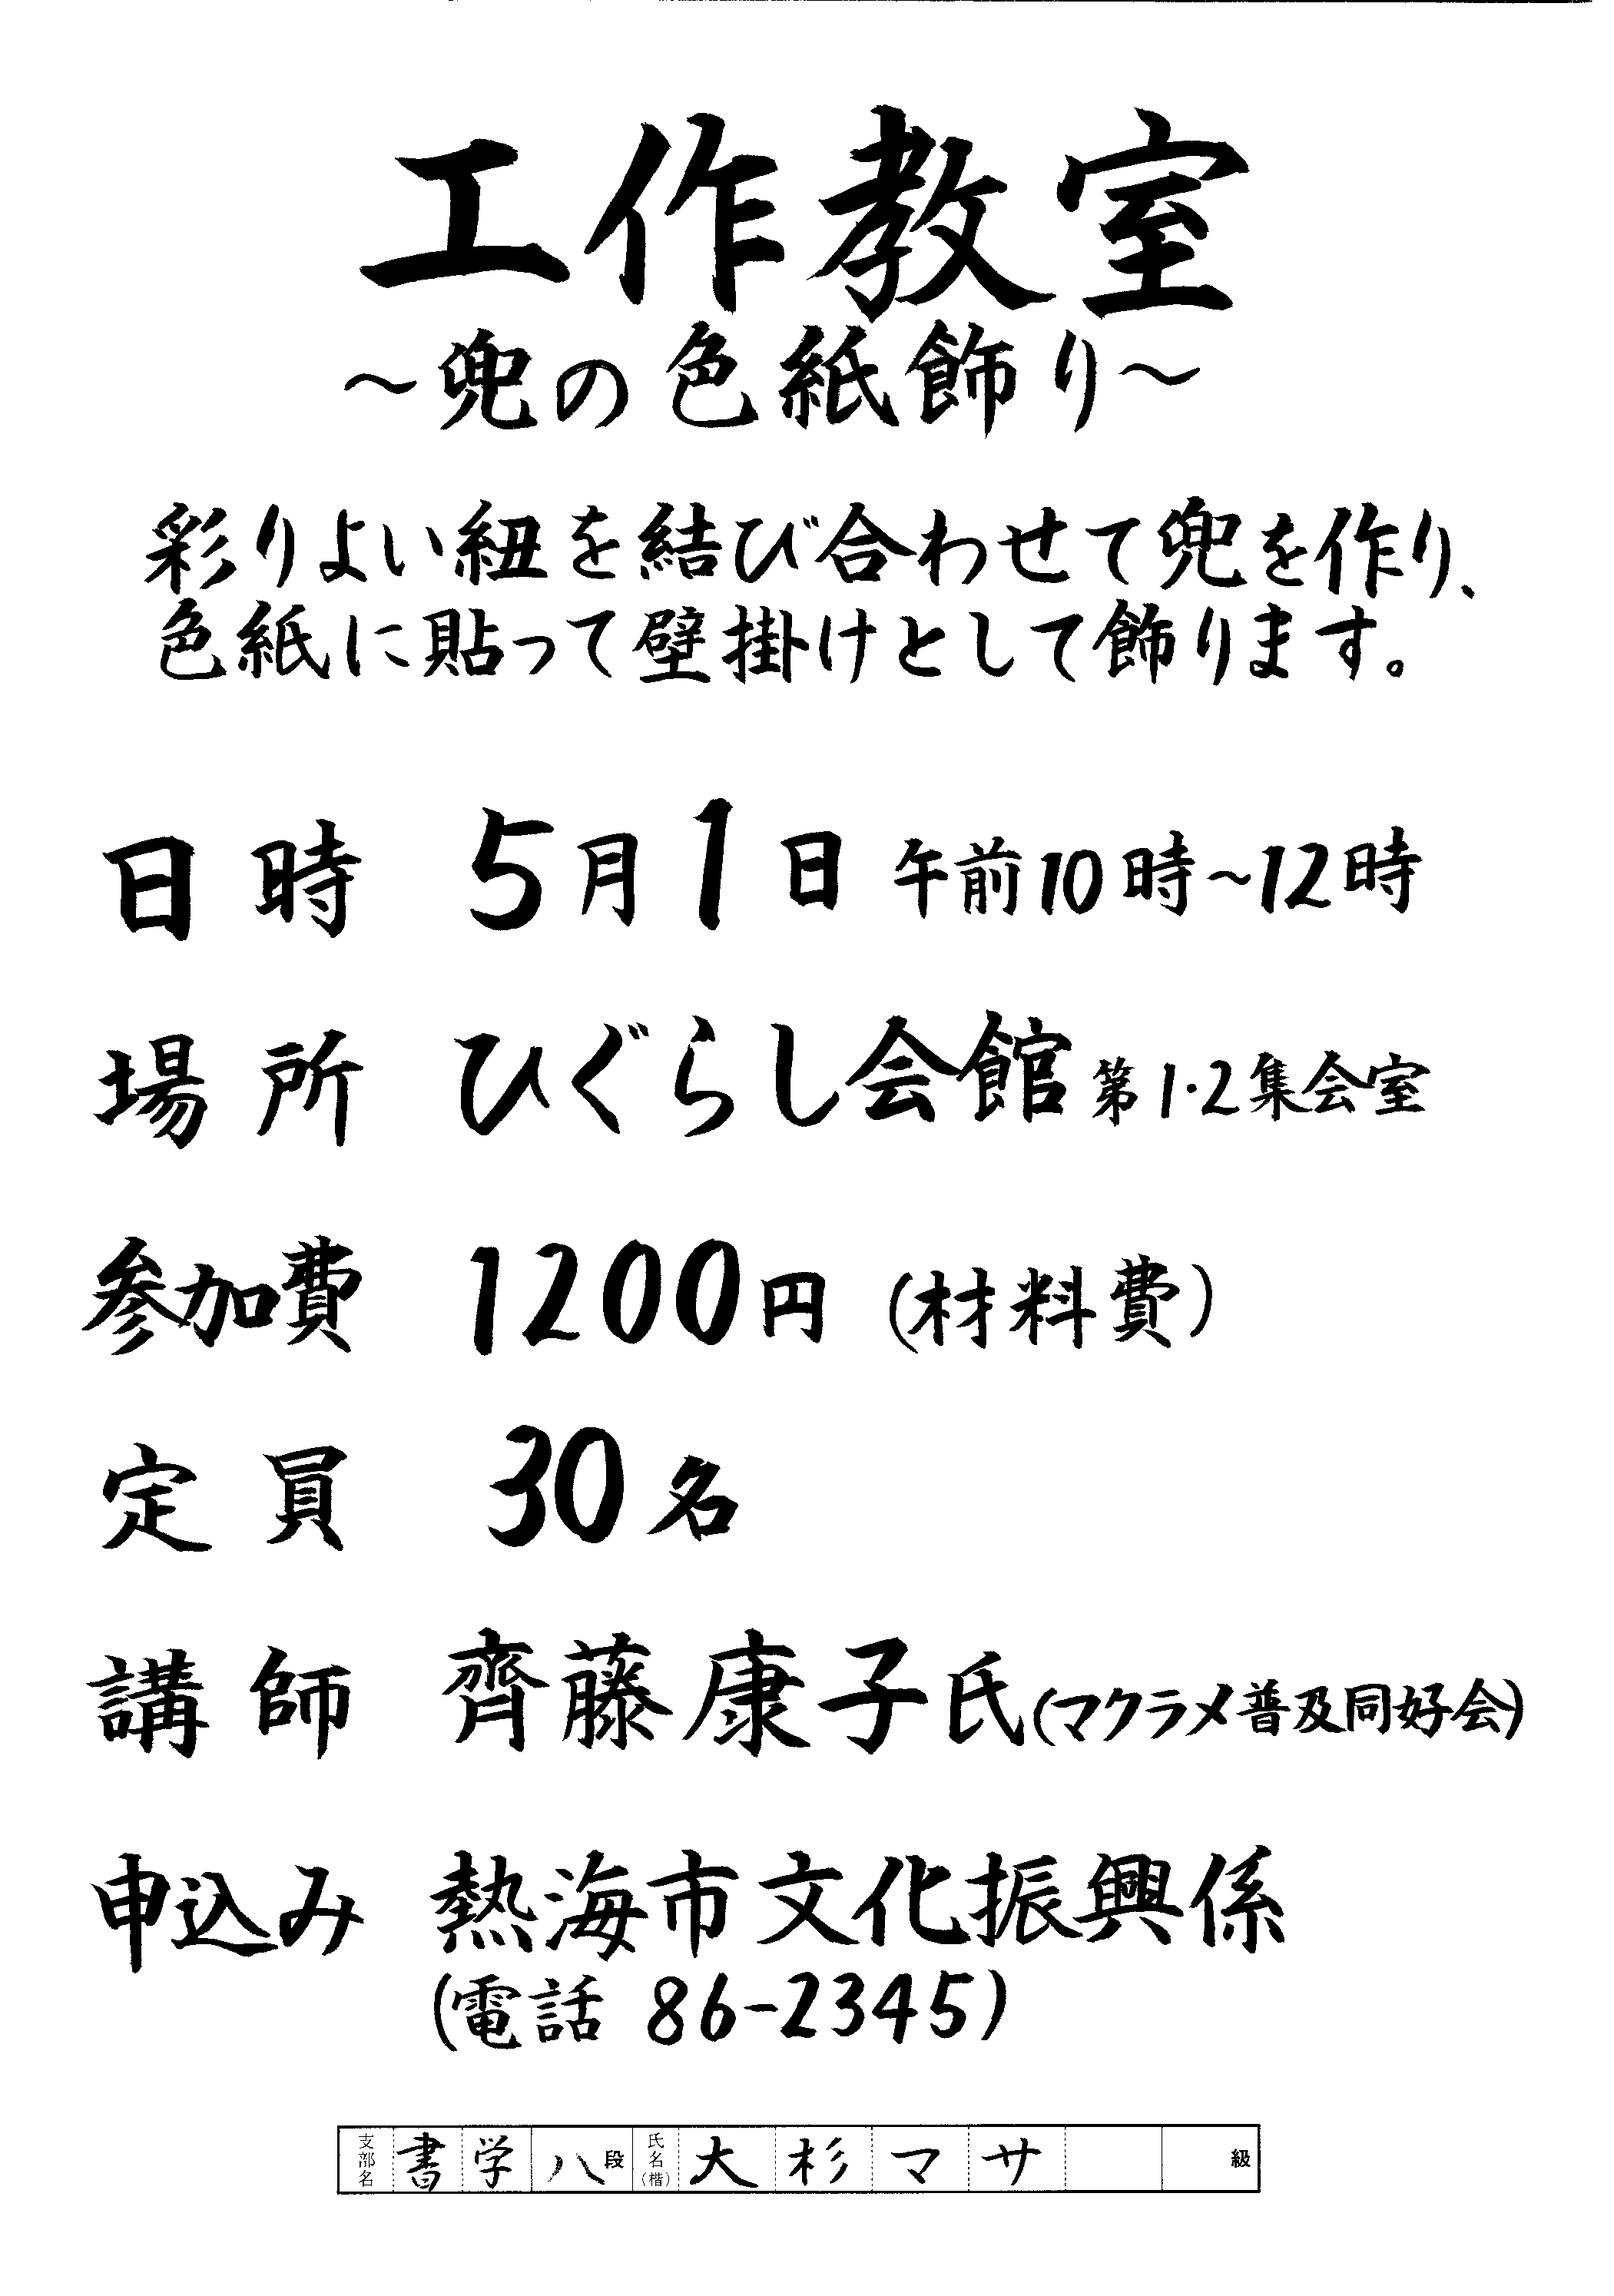 工作教室
～兜の色紙飾り～
彩りよい紐を結び合わせて兜を作り、
色紙に貼って壁掛けとして飾ります。
日時 5月1日 午前10時～12時
場所 ひぐらし会館 第1・2集会室
参加費 1200円 (材料費)
定員 30名
講師 齊藤康子氏(マクラメ普及同好会)
申込み 熱海市文化振興係
(電話 86-2345)
支部名 書学 八段 氏名(楷) 大杉マサ 級